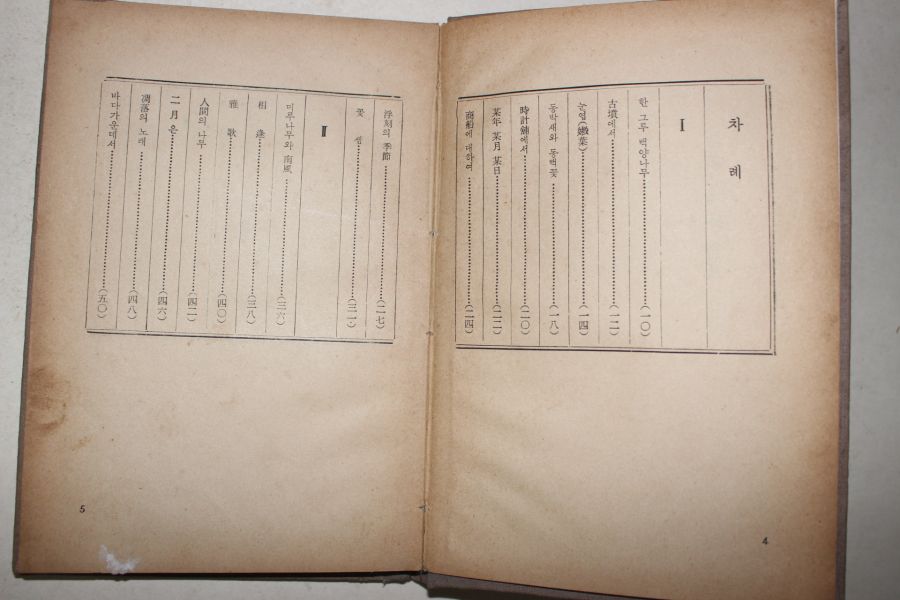 차례
I
한 그루 백양나무 (一〇)
古墳에서 (一二)
눈엽(嫩葉) (一四)
동박새와 동백꽃 (一八)
時計鋪에서 (二〇)
某年 某月 某日 (二二)
商船에 대하여 (二四)
4
浮刻의 季節 (二七)
꽃샘 (三一)
Ⅱ
미루나무와 南風 (三六)
相逢 (三八)
雅歌 (四〇)
人間의 나무 (四二)
二月은 (四六)
凋落의 노래 (四八)
바다가운데서 (五〇)
5